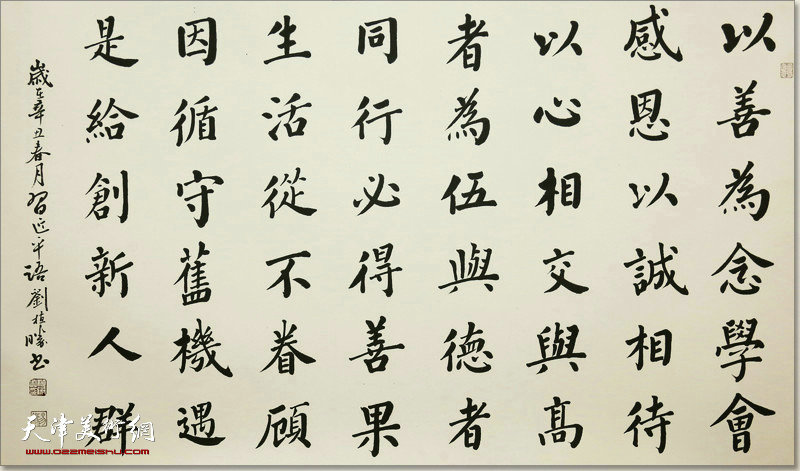 以善為念學會
感恩以誠相待
以心相交與高
者為伍與德者
同行必得善果
生活從不眷顧
因循守舊機遇
是給創新人群
歲在辛丑春月習近平語劉植勝書
天津美術網
www.022meishu.com